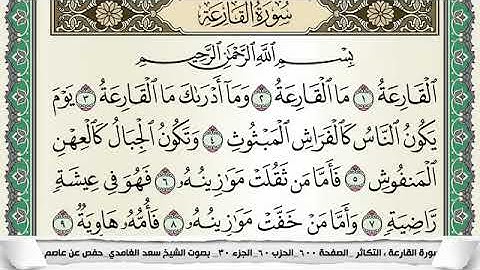 سُورَةُ القَارِعَةِ
بِسْمِ اللَّهِ الرَّحْمَٰنِ الرَّحِيمِ
الْقَارِعَةُ ١ مَا الْقَارِعَةُ ٢ وَمَا أَدْرَىٰكَ مَا الْقَارِعَةُ ٣ يَوْمَ
يَكُونُ النَّاسُ كَالْفَرَاشِ الْمَبْثُوثِ ٤ وَتَكُونُ الْجِبَالُ كَالْعِهْنِ
الْمَنفُوشِ ٥ فَأَمَّا مَن ثَقُلَتْ مَوَٰزِينُهُۥ ٦ فَهُوَ فِي عِيشَةٍ
رَّاضِيَةٍ ٧ وَأَمَّا مَنْ خَفَّتْ مَوَٰزِينُهُۥ ٨ فَأُمُّهُۥ هَاوِيَةٌ ٩
سورة القارعة ، التكاثر _ الصفحة ٦٠٠ _ الحزب ٦٠ _ الجزء ٣٠ _ بصوت الشيخ سعد الغامدي _ حفص عن عاصم